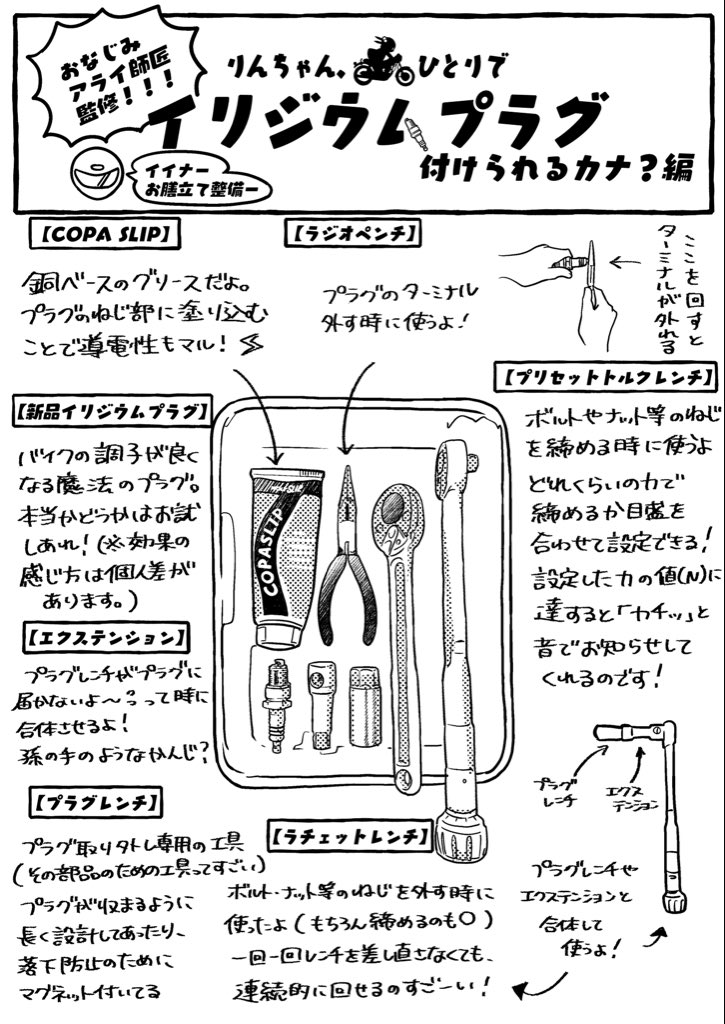 おなじみ
アライ師匠
監修！！！
りんちゃん、ひとりで
イリジウムプラグ
付けられるカナ？編
イイナー
お膳立て整備ー
【COPA SLIP】
銅ベースのグリースだよ。
プラグのねじ部に塗り込む
ことで導電性もマル！
【ラジオペンチ】
プラグのターミナル
外す時に使うよ！
ここを回すと
ターミナルが外れる
【プリセットトルクレンチ】
ボルトやナット等のねじ
を締める時に使うよ
どれくらいの力で
締めるか目盛を
合わせて設定できる！
設定した力の値(N)に
達すると「カチッ」と
音でお知らせして
くれるのです！
【新品イリジウムプラグ】
バイクの調子が良く
なる魔法のプラグ。
本当かどうかはお試
しあれ！(※効果の
感じ方は個人差が
あります。)
COPASLIP
【エクステンション】
プラグレンチがプラグに
届かないよ〜？って時に
合体させるよ！
孫の手のようなかんじ？
【プラグレンチ】
プラグ取り外し専用の工具
(その部品のための工具ってすごい)
プラグが収まるように
長く設計してあったり、
落下防止のために
マグネット付いてる
【ラチェットレンチ】
ボルト・ナット等のねじを外す時に
使ったよ(もちろん締めるのも○)
一回一回レンチを差し直さなくても、
連続的に回せるのすごーい！
プラグ
レンチ
エクス
テンション
プラグレンチや
エクステンションと
合体して
使うよ！